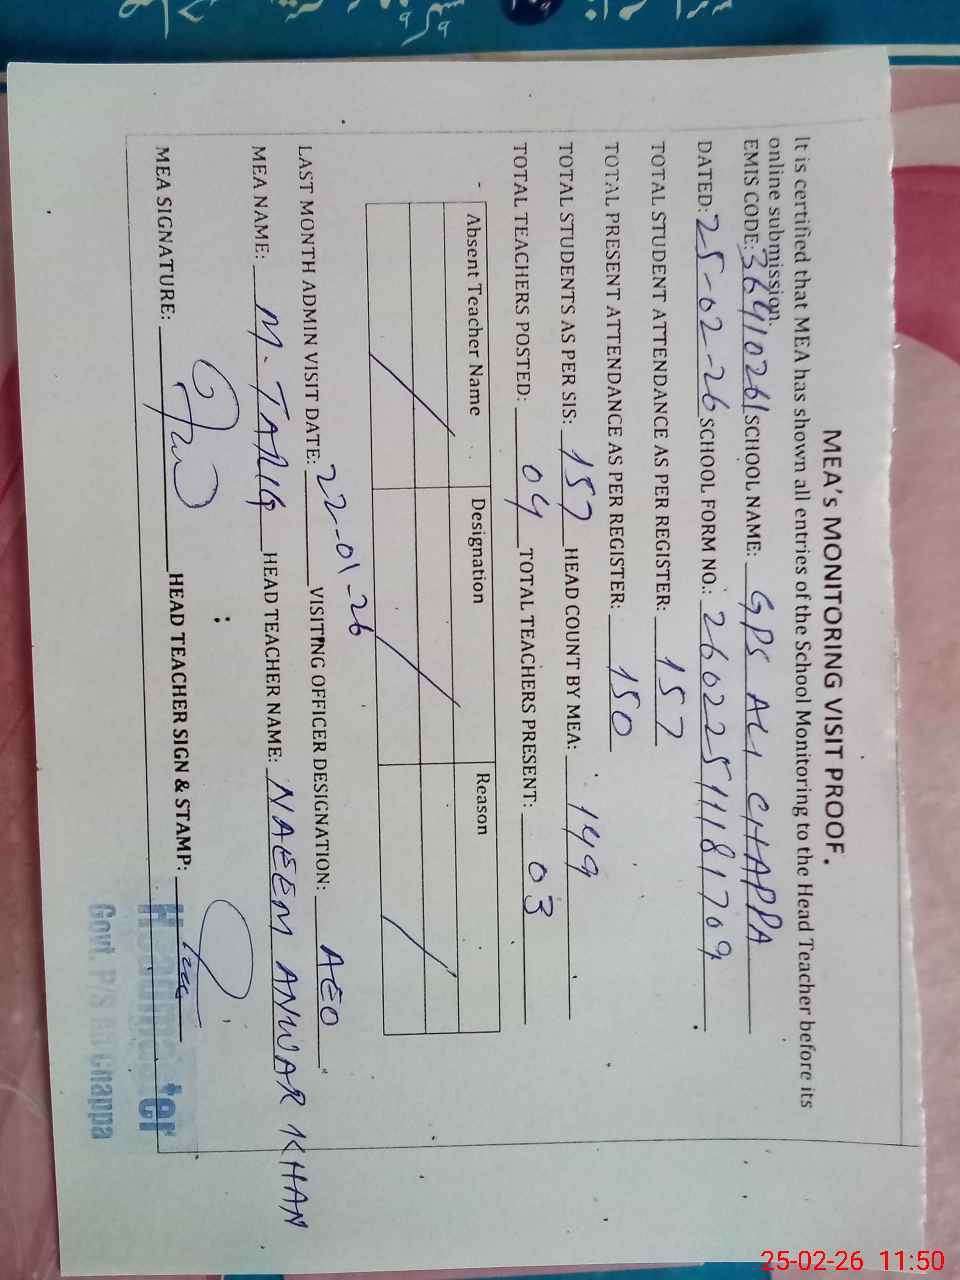 MEA's MONITORING VISIT PROOF.
It is certified that MEA has shown all entries of the School Monitoring to the Head Teacher before its
online submission.
EMIS CODE: 36410261 SCHOOL NAME: GPS ALI CHAPPA
DATED: 25-02-26 SCHOOL FORM NO.: 26022511181709
TOTAL STUDENT ATTENDANCE AS PER REGISTER: 157
TOTAL PRESENT ATTENDANCE AS PER REGISTER: 150
TOTAL STUDENTS AS PER SIS: 157 HEAD COUNT BY MEA: 149
TOTAL TEACHERS POSTED: 04 TOTAL TEACHERS PRESENT: 03
Absent Teacher Name Designation Reason
LAST MONTH ADMIN VISIT DATE: 22-01-26 VISITING OFFICER DESIGNATION: AEO
MEA NAME: M. TARIQ HEAD TEACHER NAME: NAEEM ANWAR KHAN
MEA SIGNATURE: HEAD TEACHER SIGN & STAMP:
Headmaster
Govt. P/S Ali Chappa
25-02-26 11:50